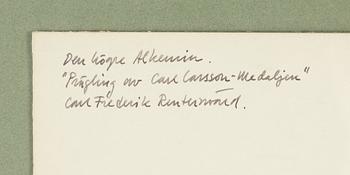 Den högre Alkemin.
"Prägling av Carl Larsson-Medaljen"
Carl Frederik Reuterswärd.